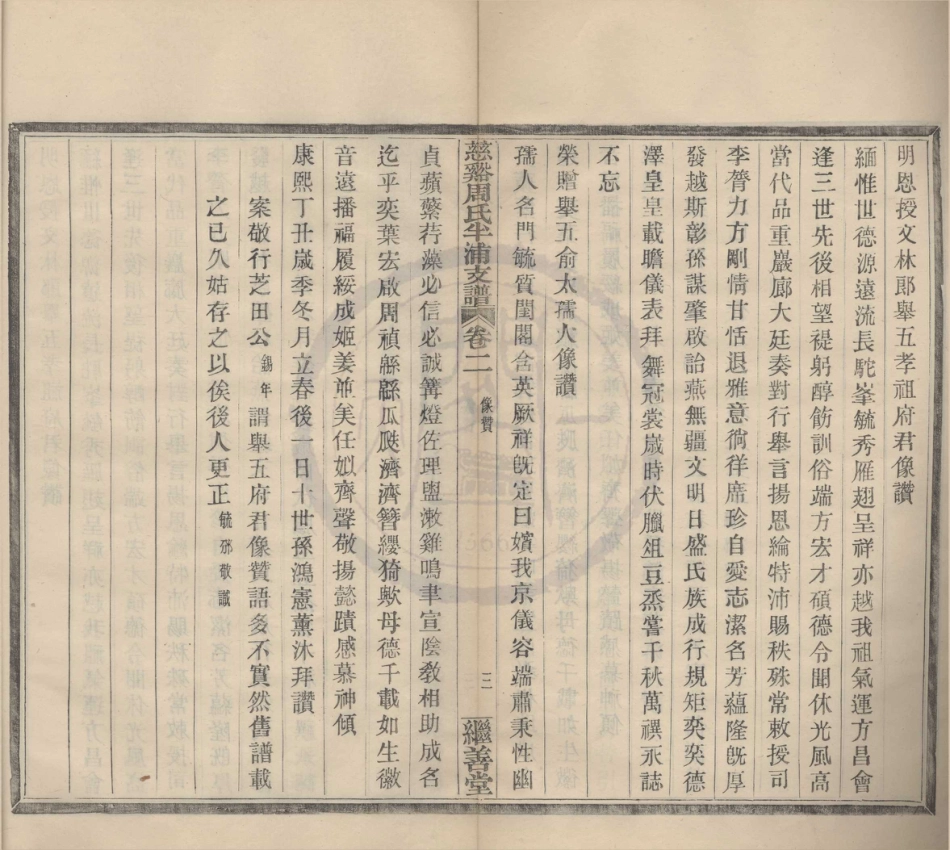 明恩授文林郎舉五孝祖府君像讚
緬惟世德源遠流長駝峯毓秀雁翅呈祥亦越我祖氣運方昌會
逢三世先後相望禔躬醇飭訓俗端方宏才碩德令聞休光風高
當代品重巖廊大廷奏對行舉言揚恩綸特沛賜秩殊常敕授司
李膂力方剛情甘恬退雅意徜徉席珍自愛志潔名芳蘊隆旣厚
發越斯彰孫謀肇啟詒燕無疆文明日盛氏族成行規矩奕奕德
澤皇皇載瞻儀表拜舞冠裳歲時伏臘俎豆烝嘗千秋萬禩永誌
不忘
榮贈舉五俞太孺人像讚
孺人名門毓質閨閣含英厥祥旣定曰嬪我京儀容端肅秉性幽
慈谿周氏半浦支譜 卷二 像贊 三 繼善堂
貞蘋蘩荇藻必信必誠篝燈佐理盥漱雞鳴聿宣陰敎相助成名
迄乎奕葉宏啟周禎緜緜瓜瓞濟濟簪纓猗歟母德千載如生徽
音遠播福履綏成姬姜並美任姒齊聲敬揚懿蹟感慕神傾
康熙丁丑歲季冬月立春後一日十世孫鴻憲薰沐拜讚
案敬行芝田公錫年謂舉五府君像贊語多不實然舊譜載
之已久姑存之以俟後人更正毓邠敬識